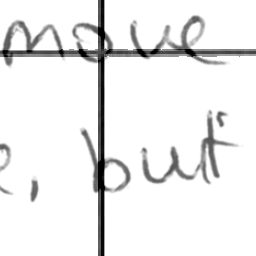 move
e, but